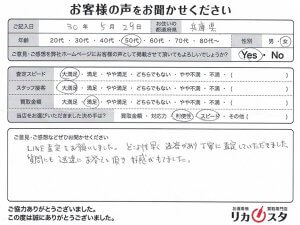 お客様の声をお聞かせください
ご記入日 30年 5月 29日 お住いの都道府県 兵庫県
年齢 20代・30代・40代・50代・60代・70代・80代〜 性別 男・女
ご意見・ご感想を弊社ホームページにお客様の声として掲載させて頂いてもよろしいでしょうか? Yes・No
査定スピード 大満足・満足・やや満足・どちらでもない・やや不満・不満・( )
スタッフ接客 大満足・満足・やや満足・どちらでもない・やや不満・不満・( )
買取金額 大満足・満足・やや満足・どちらでもない・やや不満・不満・( )
当店をお選びいただきました決め手は? 買取金額・対応力・利便性・スピード・その他( )
ご意見・ご感想などぜひお聞かせください
LINE査定でお願いしました。どこよりも早く返答があり丁寧に査定していただきました
質問にも迅速にお答え頂き好感がもてました。
ご協力ありがとうございました。
この度は誠にありがとうございました。
お酒専門 買取専門店
リカスタ